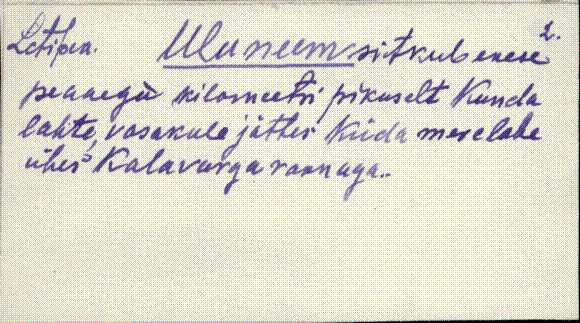 2.
Letipea. Uluneem sitkub enese
peaaegu kilomeetri pikuselt Kunda
lahte, vasakule jättes Kiida merelahe
ühes Kalavarga raanaga..